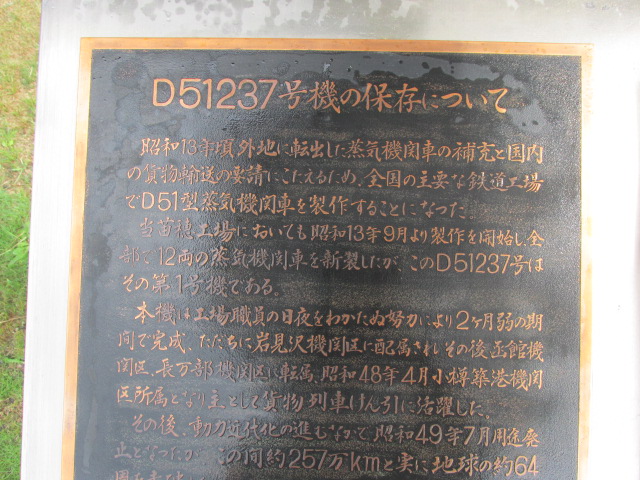 D51237号機の保存について
昭和13年頃外地に転出した蒸気機関車の補充と国内
の貨物輸送の要請にこたえるため、全国の主要な鉄道工場
でD51型蒸気機関車を製作することになった
当苗穂工場においても昭和13年9月より製作を開始し、全
部で12両の蒸気機関車を新製したが、このD51237号は
その第1号機である。
本機は工場職員の日夜をわかたぬ努力により2ケ月弱の期
間で完成、ただちに岩見沢機関区に配属され その後函館機
関区、長万部機関区に転属、昭和48年4月小樽築港機関
区所属となり主として貨物列車けん引に活躍した。
その後、動力近代化の進むなかで昭和49年7月用途廃
止となったが この間約257万kmと実に地球の約64
周